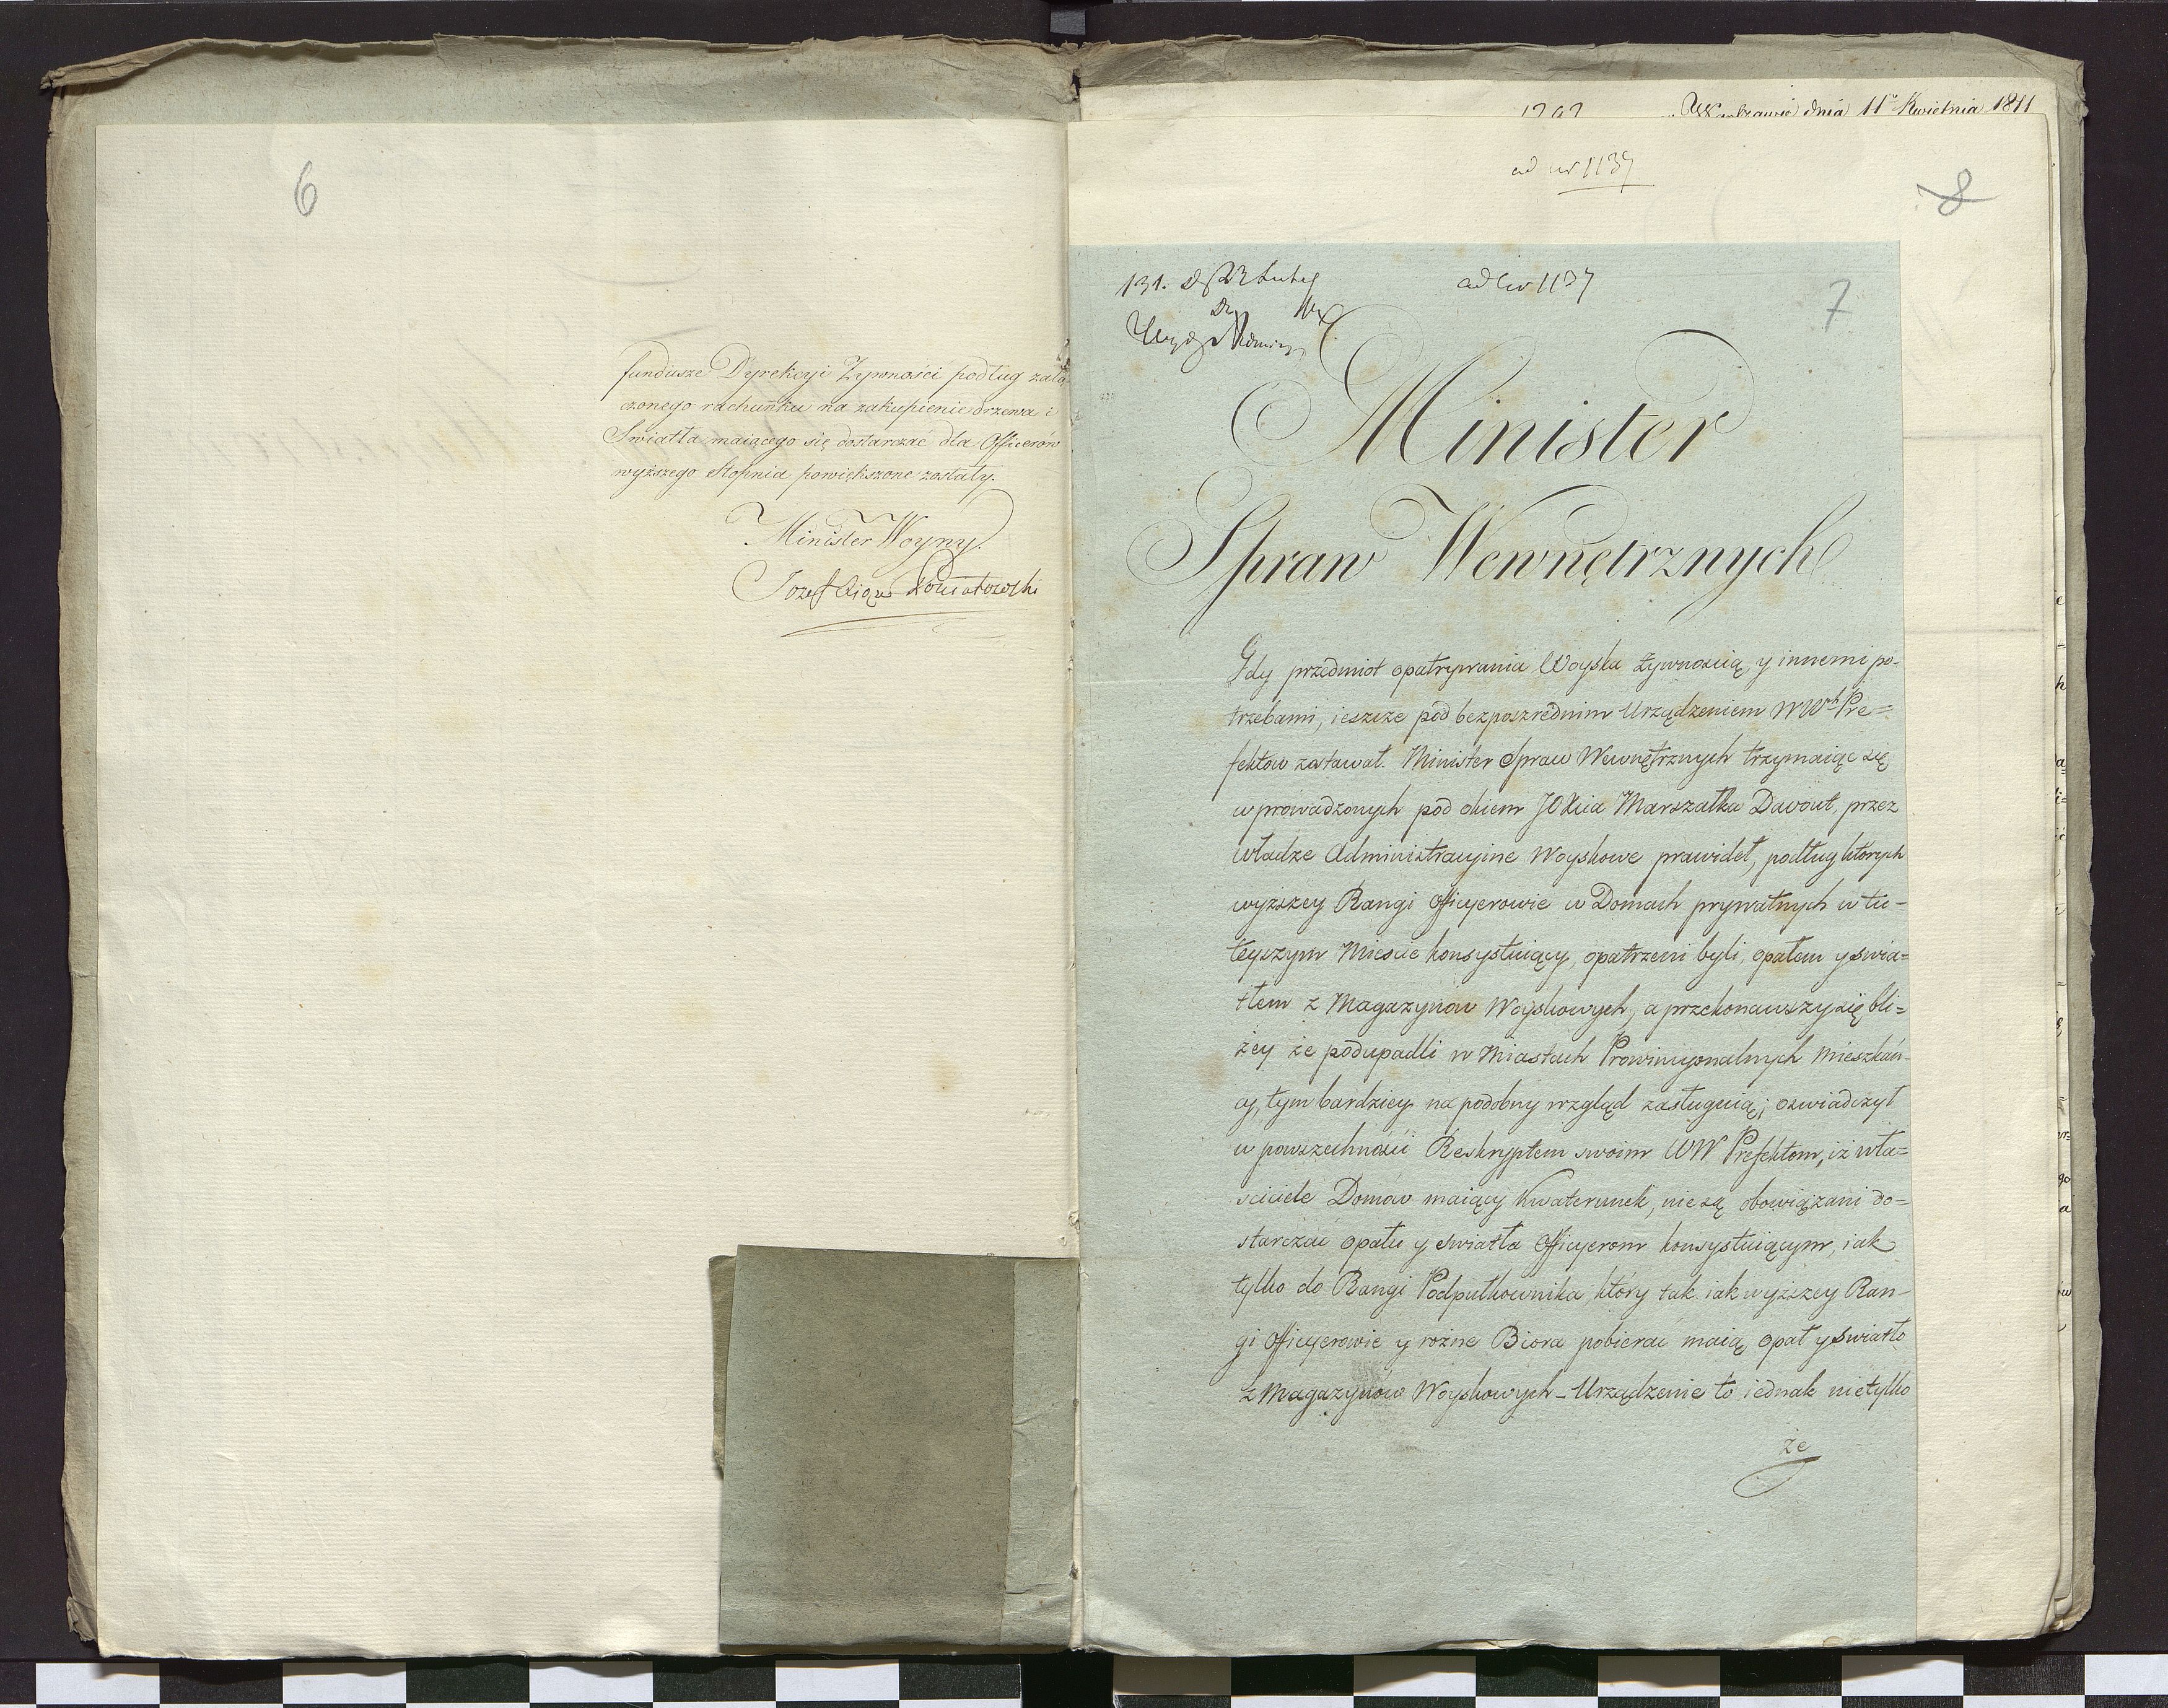 6
fundusze Dyrekcyi Zywności podług załą
czonego rachunku na zakupienie drzewa i
Swiatła maiącego się dostarczać dla Officerów
wyższego Stopnia powiększone zostały.
Minister Woyny.
Jozef Xiąże Poniatowski
w Warszawie dnia 11º Kwietnia 1811
ad nr 1137
8
131.
ad nr 1137
7
Minister
Spraw Wewnętrznych
Gdy przedmiot opatrywania Woyska żywnością, y innemi po-
trzebami, ieszcze pod bezposzrednim Urządzeniem WWch Pre=
fektow zostawał. Minister Spraw Wewnętrznych trzymaiąc się
wprowadzonych pod okiem JOXcia Marszałka Davout, przez
władze Administracyine Woyskowe prawideł, podług ktorych
wyższey Rangi Officyerowie w Domach prywatnych w tu-
teyszym Miescie konsystuiący, opatrzeni byli, opałem y swia=
tłem z Magazynow Woyskowych, a przekonawszy się bli=
żey że podupadli w Miastach Prowincyonalnych Mieszkań-
cy, tym bardziey na podobny wzgląd zasługuią; oswiadczył
w powszechności Reskryptem swoim WW Prefektom, iż wła=
sciciele Domow maiący Kwaterunek, nie są obowiązani do=
starczać opału y swiatła Officyerom konsystuiącym, iak
tylko do Rangi Podpułkownika, ktory tak iak wyższey Ran-
gi Officyerowie y rożne Biora pobierać maią opał y swiatło
z Magazynow Woyskowych - Urządzenie to iednak nietylko
że